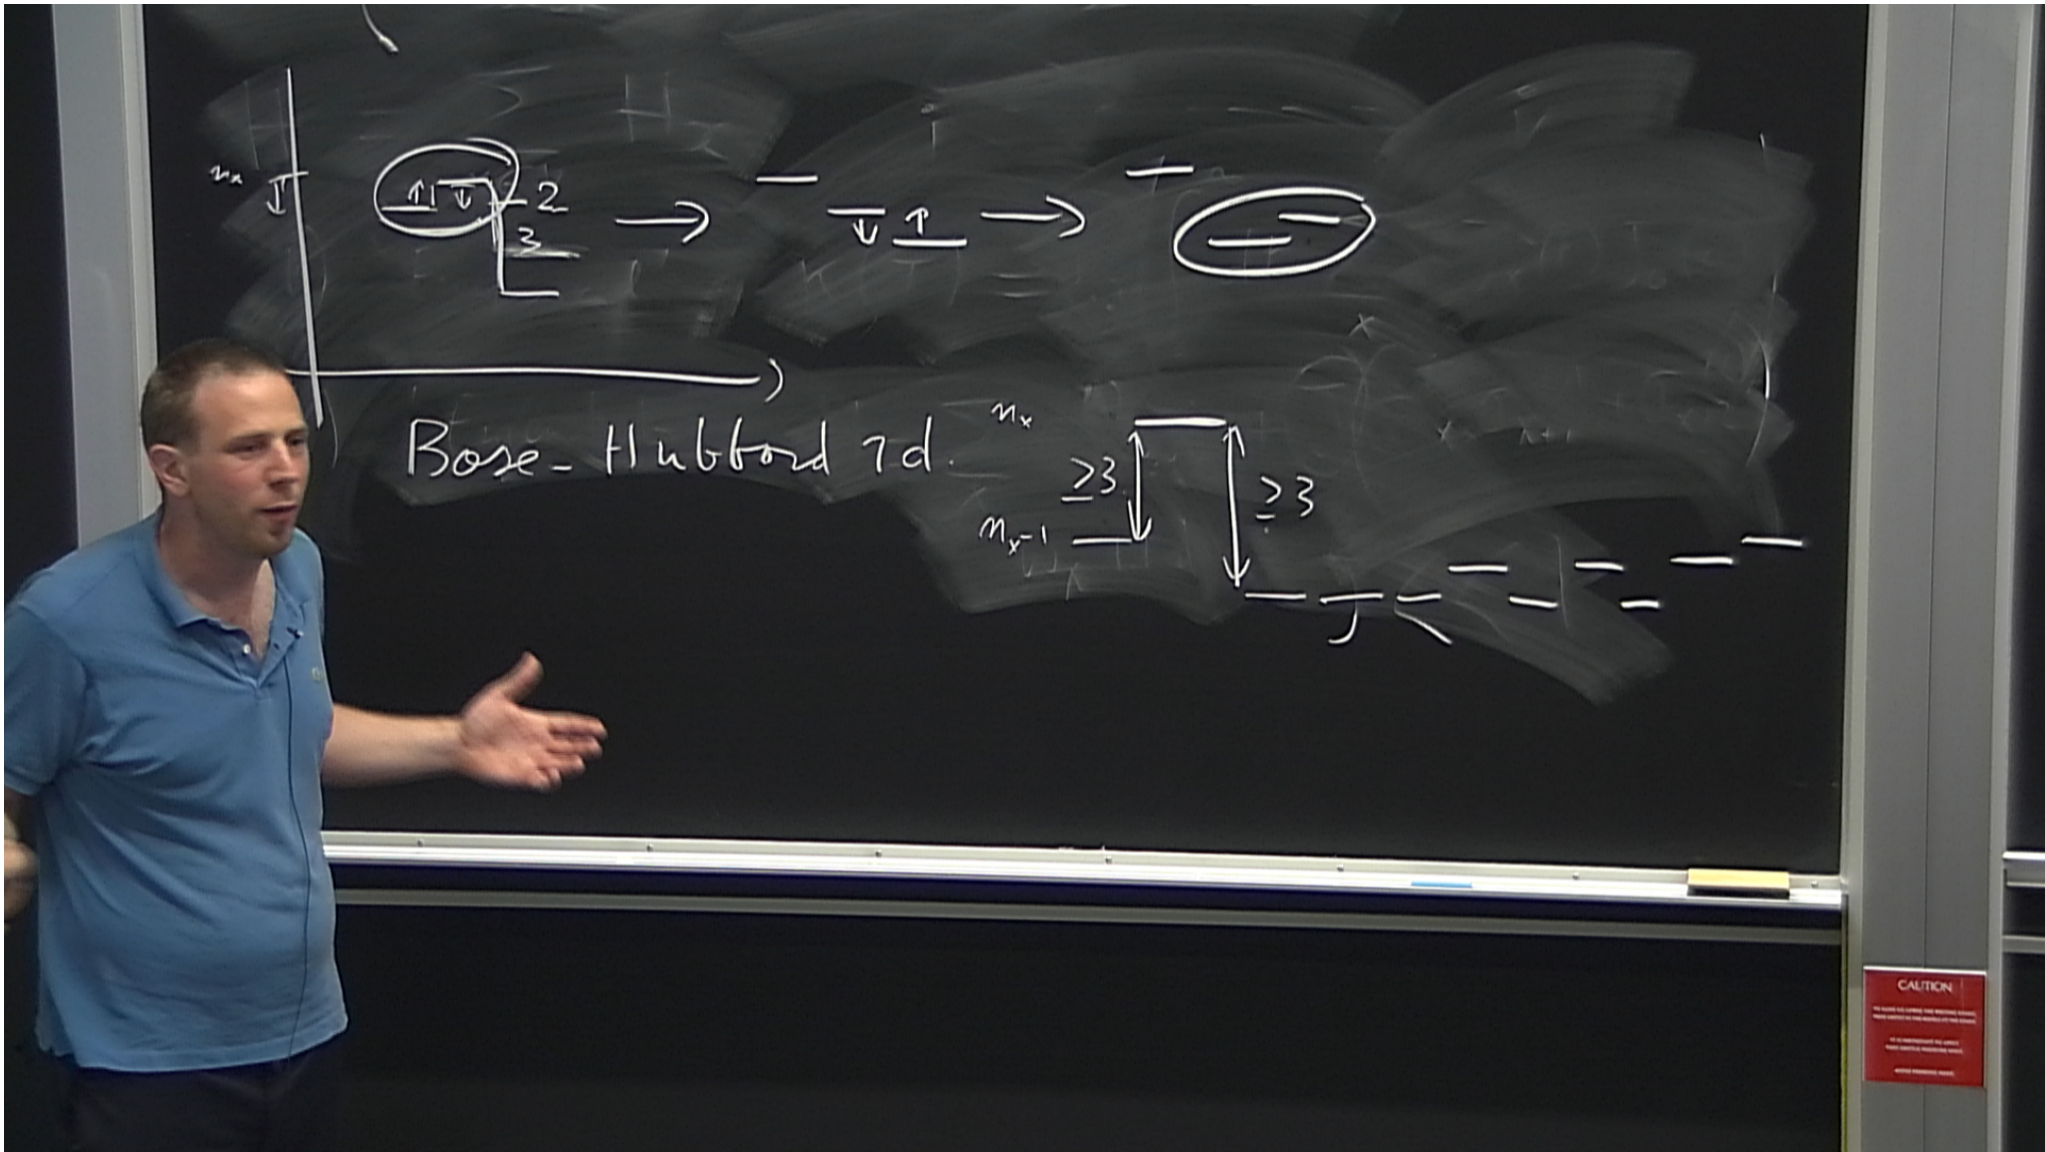 n_x ↑↓ 2
3
→ ↓ ↑ →
Bose-Hubbard 1d.
n_x
≥3 ≥3
n_x-1
CAUTION